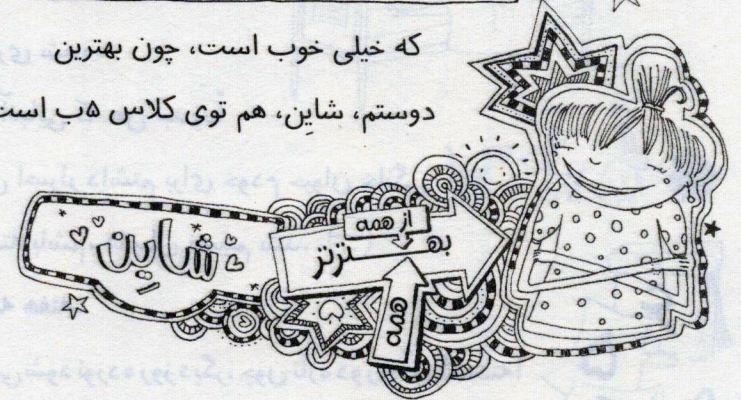 که خیلی خوب است، چون بهترین
دوستم، شاین، هم توی کلاس ۵ب است
شاین
از همه
همه